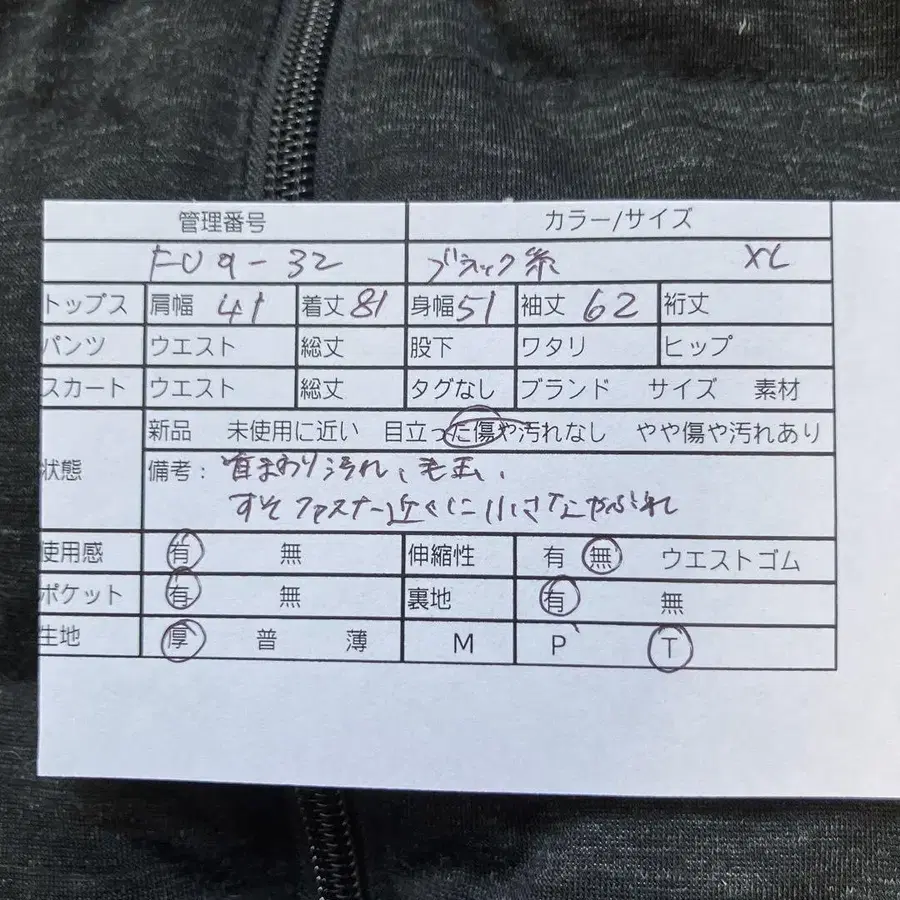 管理番号 カラー/サイズ
FU9-32 ブラック系 XL
トップス 肩幅 41 着丈 81 身幅 51 袖丈 62 裄丈
パンツ ウエスト 総丈 股下 ワタリ ヒップ
スカート ウエスト 総丈 タグなし ブランド サイズ 素材
新品 未使用に近い 目立った傷や汚れなし やや傷や汚れあり
状態 備考: 首まわり汚れ、毛玉、
すそファスナー近くに小さなやぶれ
使用感 有 無 伸縮性 有 無 ウエストゴム
ポケット 有 無 裏地 有 無
生地 厚 普 薄 M P T